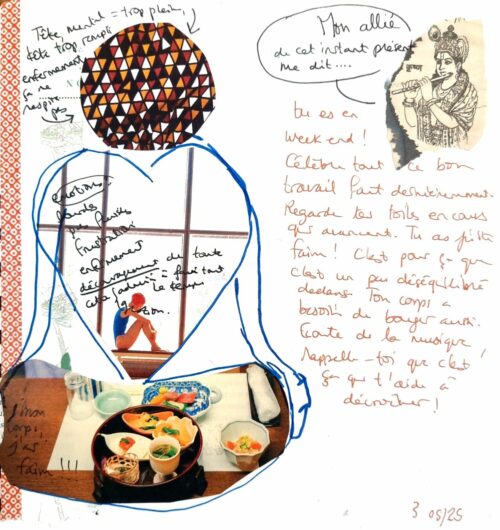 Tête, mental = trop plein,
tête trop rempli
enfermement
ça ne
respire
pas
émotions:
lourds
pas fluides
frustration
enfermement
découragement de toute
cette "admin" = faire tout
le temps
gestion.
mon
corps,
j'ai
faim !!!
Mon allié
de cet instant présent
me dit....
कृष्ण
tu es en
week end !
Célèbre tout ce bon
travail fait dernièrement.
Regarde les toiles en cours
qui avancent. Tu as juste
faim ! C'est pour ça que
c'est un peu déséquilibré
dedans. Ton corps a
besoin de bouger aussi.
Ecoute de la musique !
Rappelle-toi que c'est
ça qui t'aide à
décrocher !
3 05/25